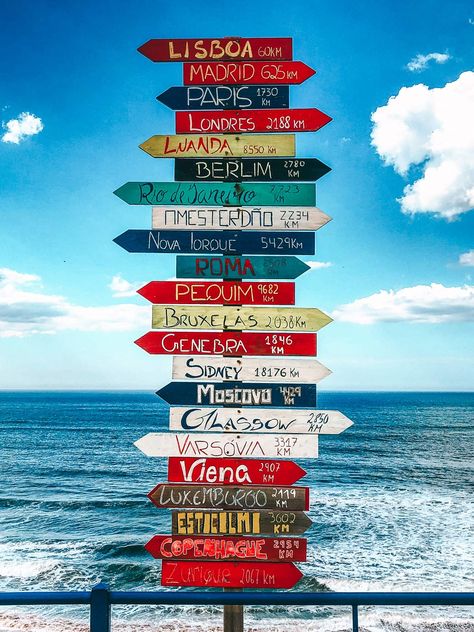 LISBOA 60KM
MADRID 625KM
PARIS 1730 KM
LONDRES 2188 KM
LUANDA 8550 KM
BERLIM 2780 KM
RIO DE JANEIRO 7723 KM
AMESTERDÃO 2234 KM
NOVA IORQUE 5429KM
ROMA KM
PEQUIM 9682 KM
BRUXELAS 2038KM
GENEBRA 1846 KM
SIDNEY 18176 KM
MOSCOVO 4429 KM
GLASGOW 2850 KM
VARSÓVIA 3317 KM
VIENA 2907 KM
LUXEMBURGO 2119 KM
ESTOCOLMO 3602 KM
COPENHAGUE 2954 KM
ZURIQUE 2067KM